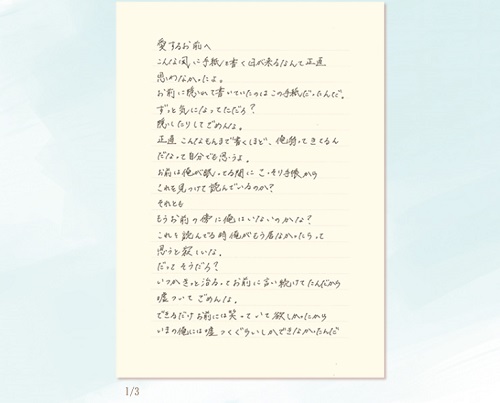 愛するお前へ
こんな風に手紙を書く日が来るなんて正直
思わなかったよ。
お前に隠れて書いていたのはこの手紙だったんだ。
ずっと気になってただろ？
隠したりしてごめんな。
正直こんなもんまで書くほど、俺弱ってきてるん
だなって自分でも思うよ。
お前は俺が眠ってる間にこっそり手帳から
これを見つけて読んでいるのか？
それとも
もうお前の傍に俺はいないのかな？
これを読んでる時俺がもう居なかったらって
思うと寂しいな。
だってそうだろ？
いつかきっと治るってお前に言い続けてたんだから
嘘ついてごめんな。
できるだけお前には笑っていて欲しかったから
いまの俺には嘘つくぐらいしかできなかったんだ
1/3